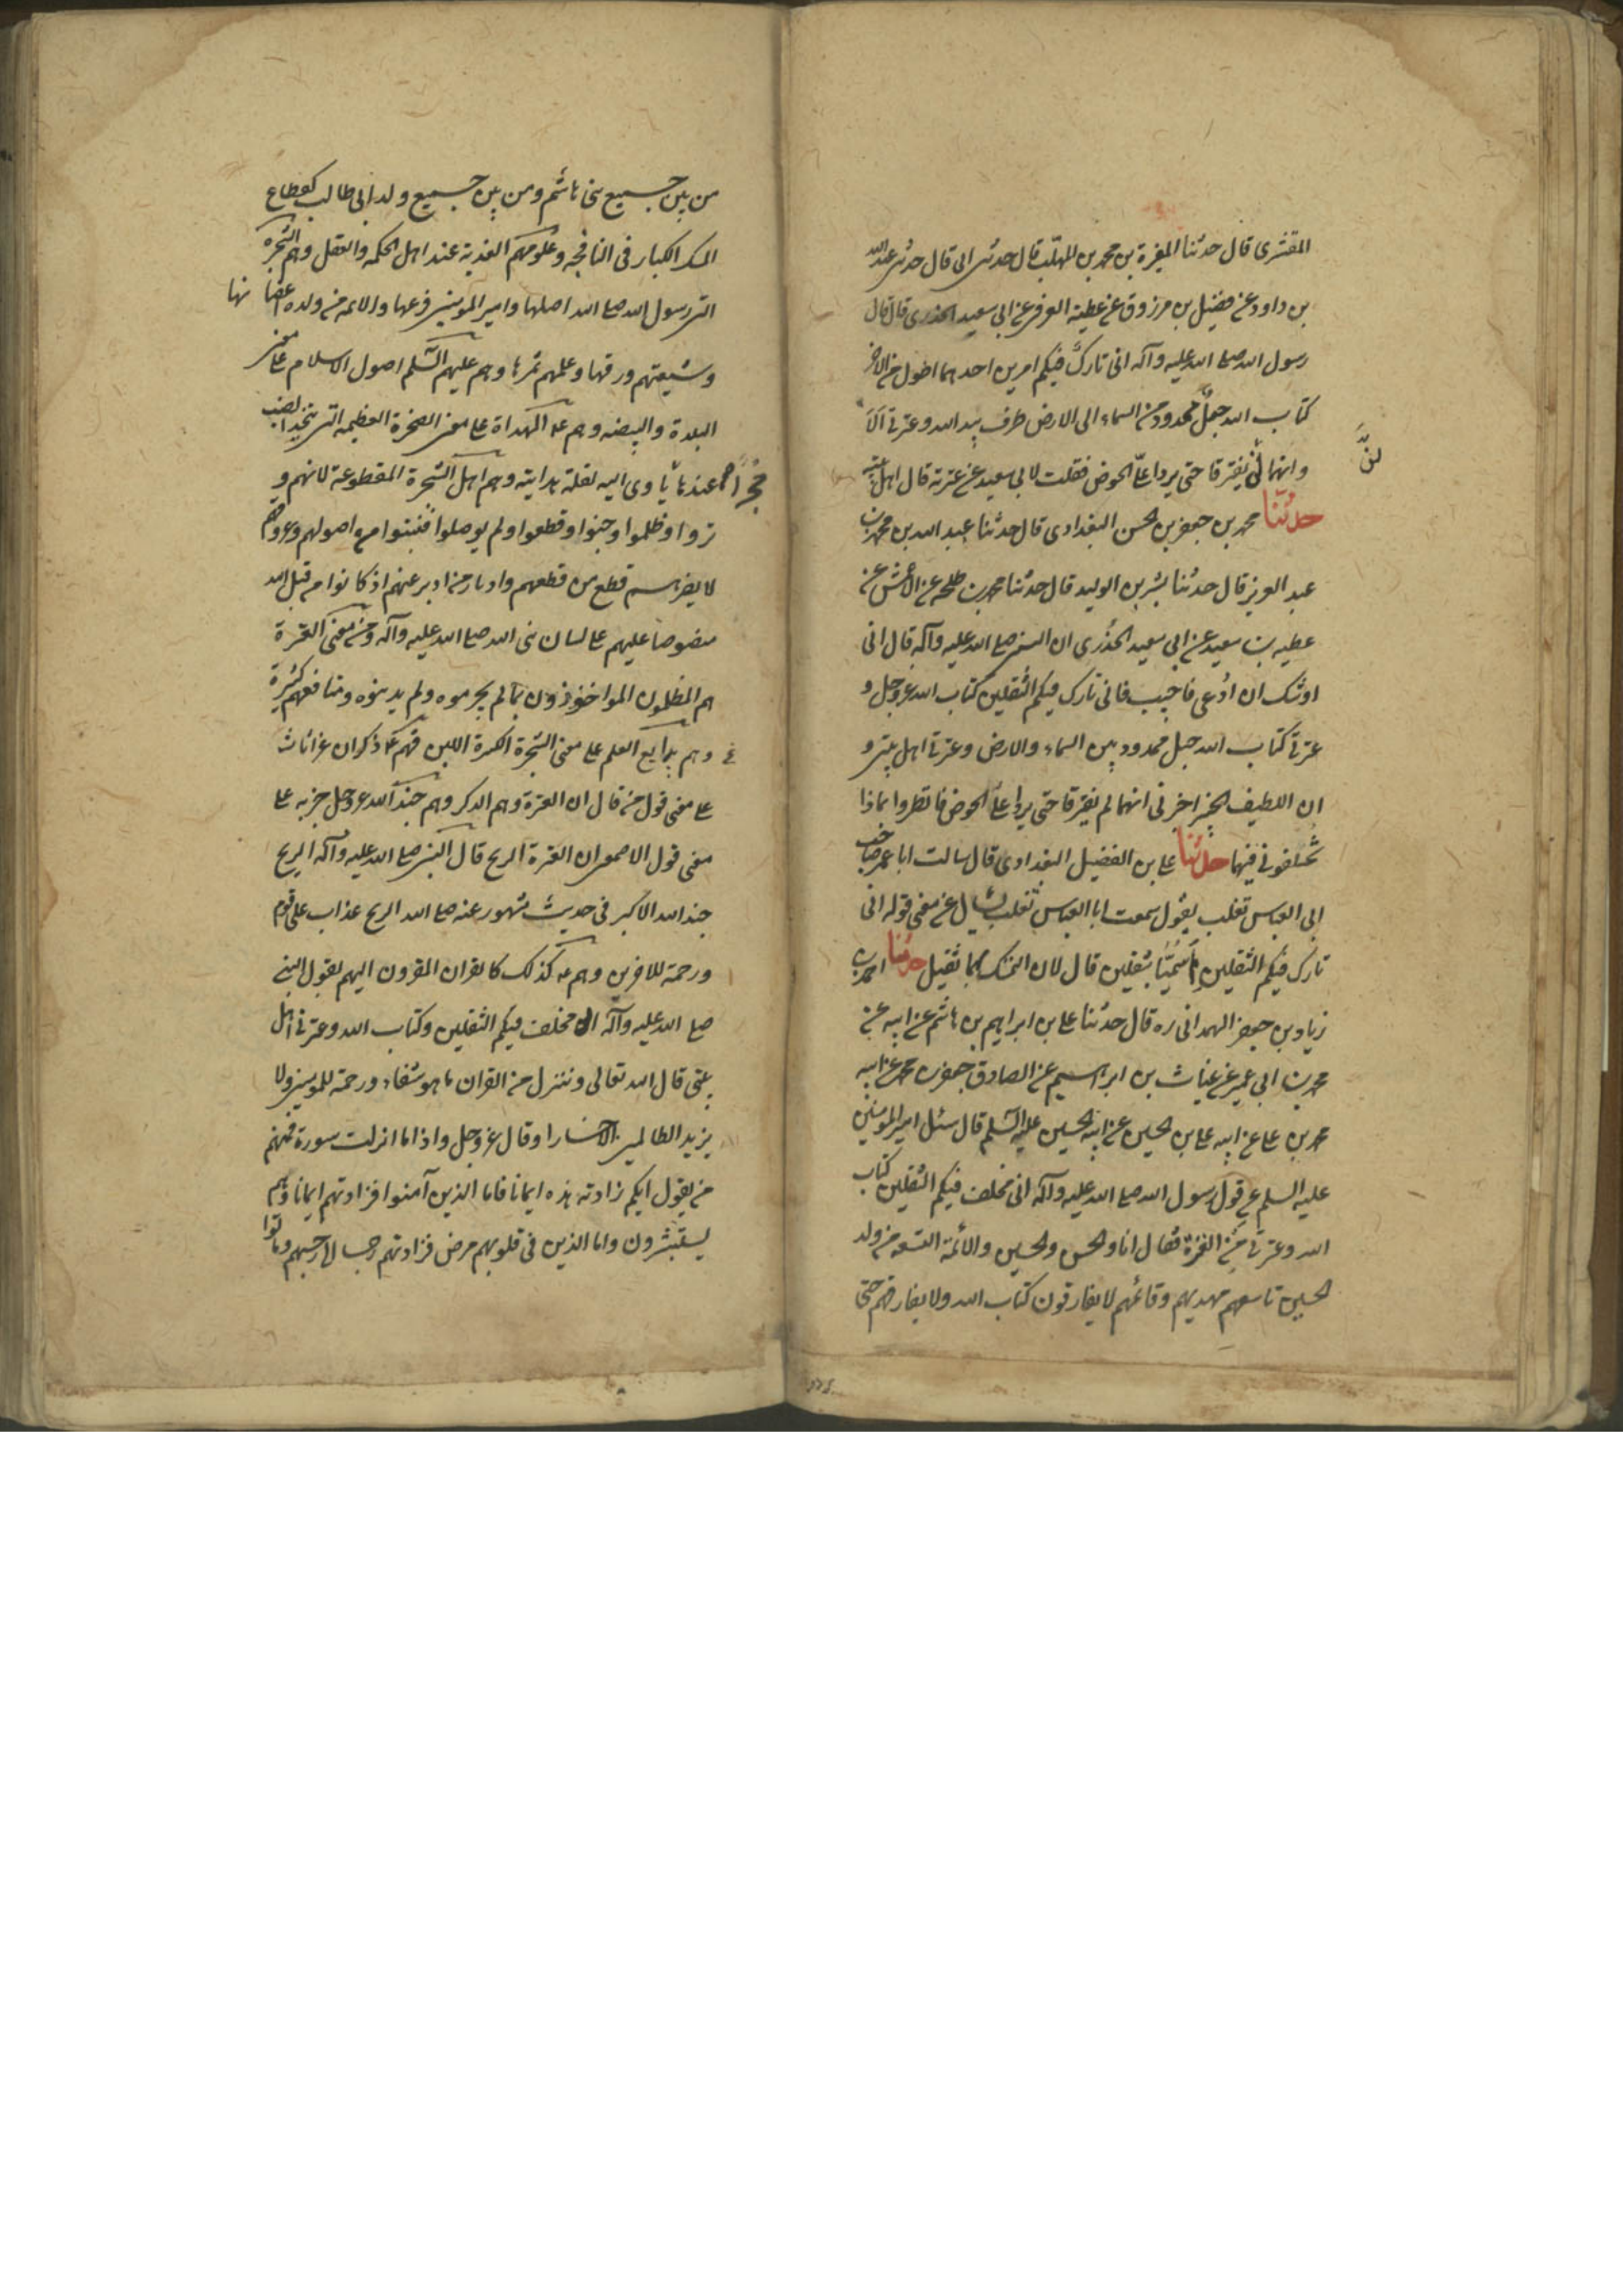 القشری قال حدثنا المغیرة بن محمد بن المهلب قال حدثنی ابی قال حدثنی عبد الله
بن داود عن فضیل بن مرزوق عن عطیة العوفی عن ابی سعید الخدری قال قال
رسول الله صلی الله علیه وآله انی تارک فیکم امرین احدهما اطول من الاخر
کتاب الله حبل ممدود من السماء الی الارض طرف بید الله وعترتی الا
وانهما لن یفترقا حتی یردا علیّ الحوض فقلت لابی سعید من عترته قال اهل بیته
لنّ
حدثنا محمد بن جعفر بن الحسن البغدادی قال حدثنا عبد الله بن محمد بن
عبد العزیز قال حدثنا بشر بن الولید قال حدثنا محمد بن طلحه عن الاعمش عن
عطیه بن سعید عن ابی سعید الخدری ان النبی صلی الله علیه وآله قال انی
اوشک ان ادعی فاجیب فانی تارک فیکم الثقلین کتاب الله عز وجل و
عترتی کتاب الله حبل ممدود بین السماء والارض وعترتی اهل بیتی و
ان اللطیف الخبیر اخبرنی انهما لم یفترقا حتی یردا علیّ الحوض فانظروا بماذا
تخلفونی فیهما حدثنا علی بن الفضیل البغدادی قال سالت ابا عمر صاحب
ابی العباس تغلب یقول سمعت ابا العباس تغلب یسال عن معنی قوله انی
تارک فیکم الثقلین لم سمیتا بثقلین قال لان التمسک بهما ثقیل حدثنا احمد بن
زیاد بن جعفر الهمدانی ره قال حدثنا علی بن ابراهیم بن هاشم عن ابیه عن
محمد بن ابی عمیر عن غیاث بن ابراهیم عن الصادق جعفر بن محمد عن ابیه
محمد بن علی عن ابیه علی بن الحسین عن ابیه الحسین علیه السلم قال سئل امیر المومنین
علیه السلم عن قول رسول الله صلی الله علیه وآله انی مخلف فیکم الثقلین کتاب
الله وعترتی من العترة فقال انا والحسن والحسین والائمة التسعه من ولد
الحسین تاسعهم مهدیهم وقائمهم لا یفارقون کتاب الله ولا یفارقهم حتی
من بین جمیع بنی هاشم ومن بین جمیع ولد ابی طالب کقطاع
المسک الکبار فی النافجه وعلومهم العذبة عند اهل الحکمه والعقل وهم الشجرة
التی رسول الله صلی الله اصلها وامیر المومنین فرعها والائمه من ولده اغصانها
وشیعتهم ورقها وعلمهم ثمرها وهم علیهم السلم اصول الاسلام علی معنی
البلدة والبیضه وهم ع الهداة علی معنی الصخرة العظیمه التی یتخذ الضب
جحرا عندها یاوی الیه لقلة هدایته وهم اهل الشجرة المقطوعة لانهم و
تروا وظلموا وجفوا وقطعوا ولم یوصلوا فنبتوا من اصولهم وعروقهم
لا یضرهم قطع من قطعهم وادبار من ادبر عنهم اذ کانوا من قبل الله
منصوصا علیهم علی لسان نبی الله صلی الله علیه وآله ومن معنی العترة
هم المظلومون المواخذون بما لم یجرموه ولم یذنبوه ومنافعهم کثیرة
وهم ینابیع العلم علی معنی الشجرة الکثیرة اللبن فهم ع ذکران غیر اناث
علی معنی قول من قال ان العترة هم الذکر وهم جند الله عز وجل حزبه علی
معنی قول الاصمعی ان العترة الریح قال النبی صلی الله علیه وآله الریح
جند الله الاکبر فی حدیث مشهور عنه صلی الله الریح عذاب علی قوم
ورحمة للاخرین وهم ع کذلک کالقران المقرون الیهم بقول النبی
صلی الله علیه وآله انی مخلف فیکم الثقلین وکتاب الله وعترتی اهل
بیتی قال الله تعالی وننزل من القران ما هو شفاء ورحمة للمومنین ولا
یزید الظالمین الا خسارا وقال عز وجل واذا ما انزلت سورة فمنهم
من یقول ایکم زادته هذه ایمانا فاما الذین آمنوا فزادتهم ایمانا وهم
یستبشرون واما الذین فی قلوبهم مرض فزادتهم رجسا الی رجسهم وماتوا